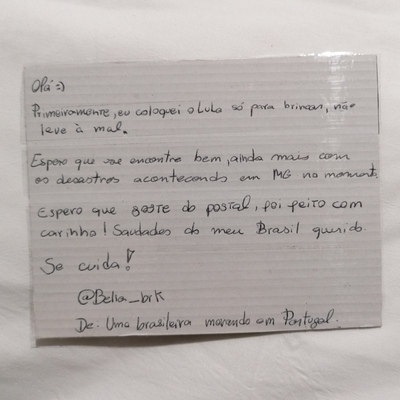 Olá :)
Primeiramente, eu coloquei o Lula só para brincar, não
leve à mal.
Espero que vce encontre bem, ainda mais com
os desastres acontecendo em MG no moment.
Espero que goste do postal, foi feito com
carinho! Saudades do meu Brasil querido.
Se cuida!
@Bella_brk
De: Uma brasileira morando em Portugal.